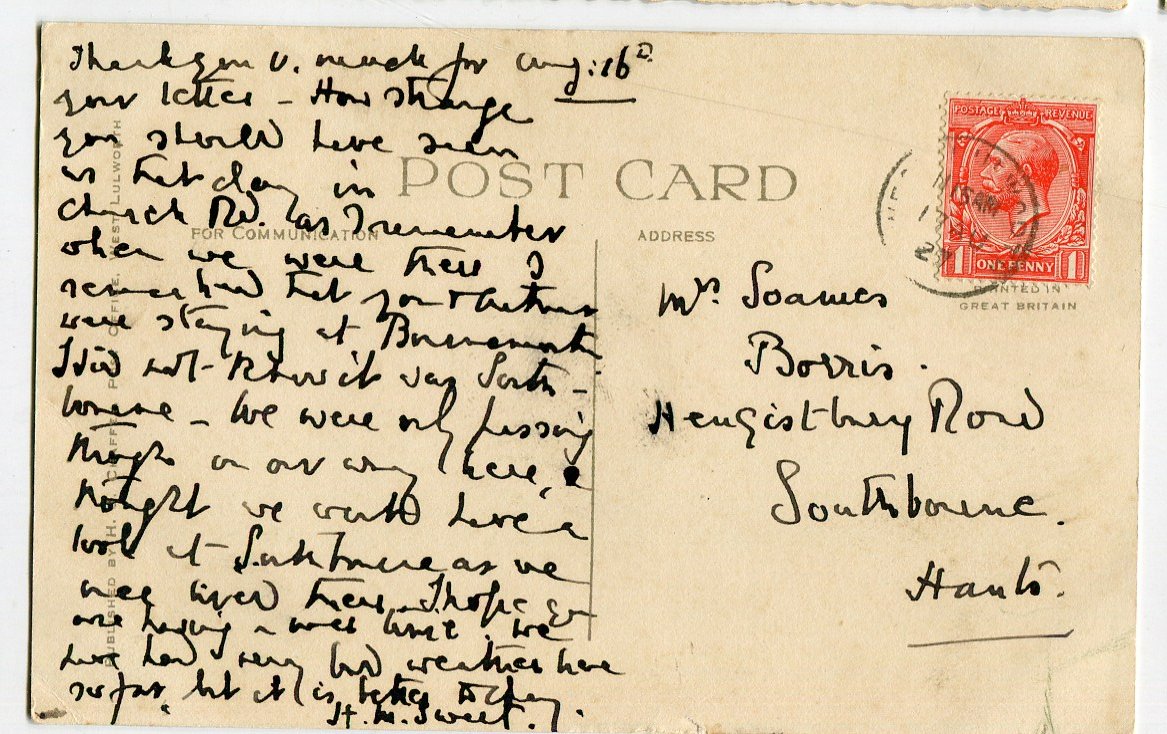 Thank you v. much for Aug: 16th
your letter – How strange
you should have seen
us that day in
Church Rd. as I remember
when we were there I
remembered that you &
were staying at Bournemouth
I did not know it was South-
bourne – We were only passing
through on our way here, &
thought we would have a
look at Southbourne as we
once lived there. I hope you
are having a nice time. We
have had very bad weather here
so far, but it is better today.
H. M. Sweet.
POST CARD
FOR COMMUNICATION
ADDRESS
Mrs Soames
Borris.
Hengistbury Road
Southbourne.
Hants.
POSTAGE REVENUE
1 ONE PENNY 1
PRINTED IN
GREAT BRITAIN
PUBLISHED BY H. POST OFFICE, WEST LULWORTH